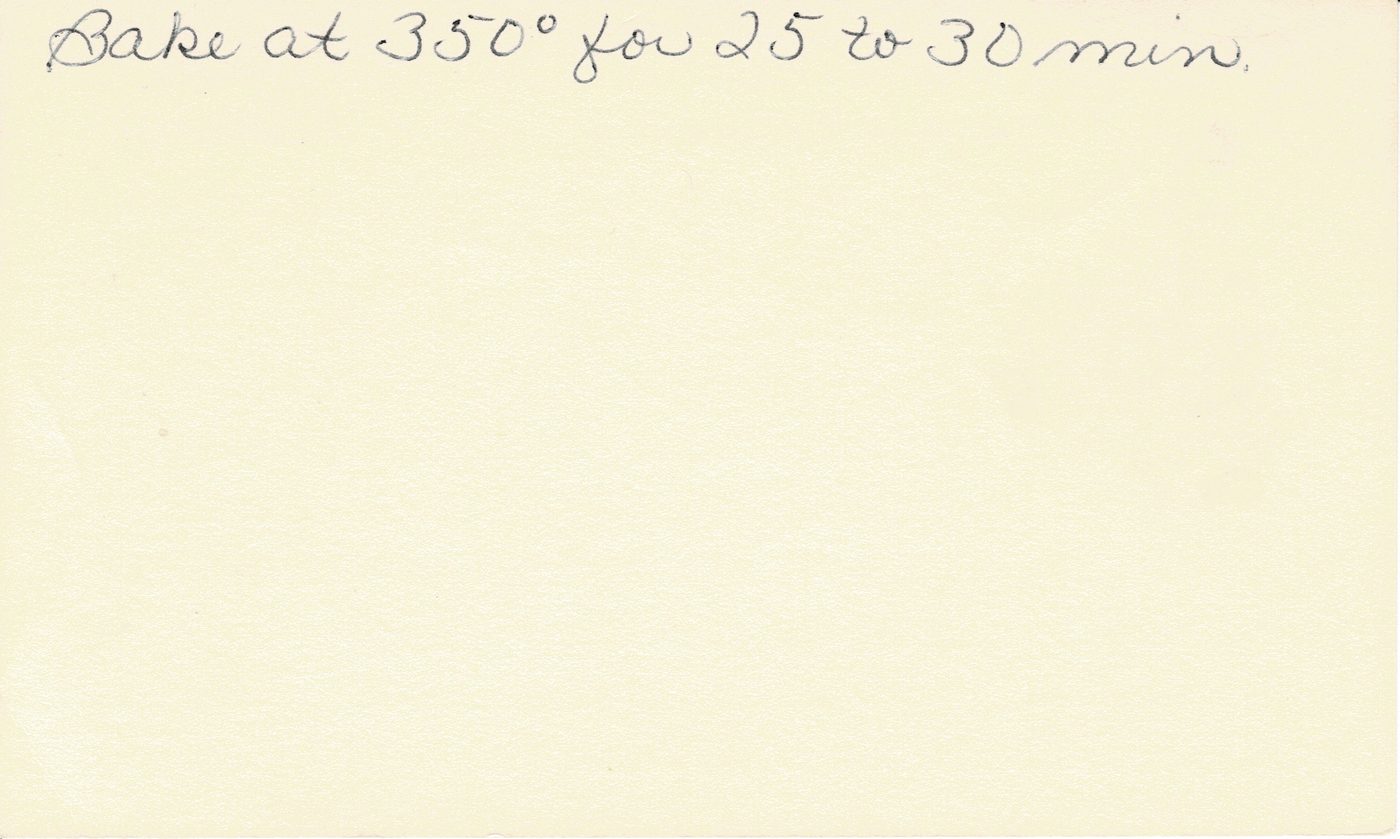 Bake at 350° for 25 to 30 min.